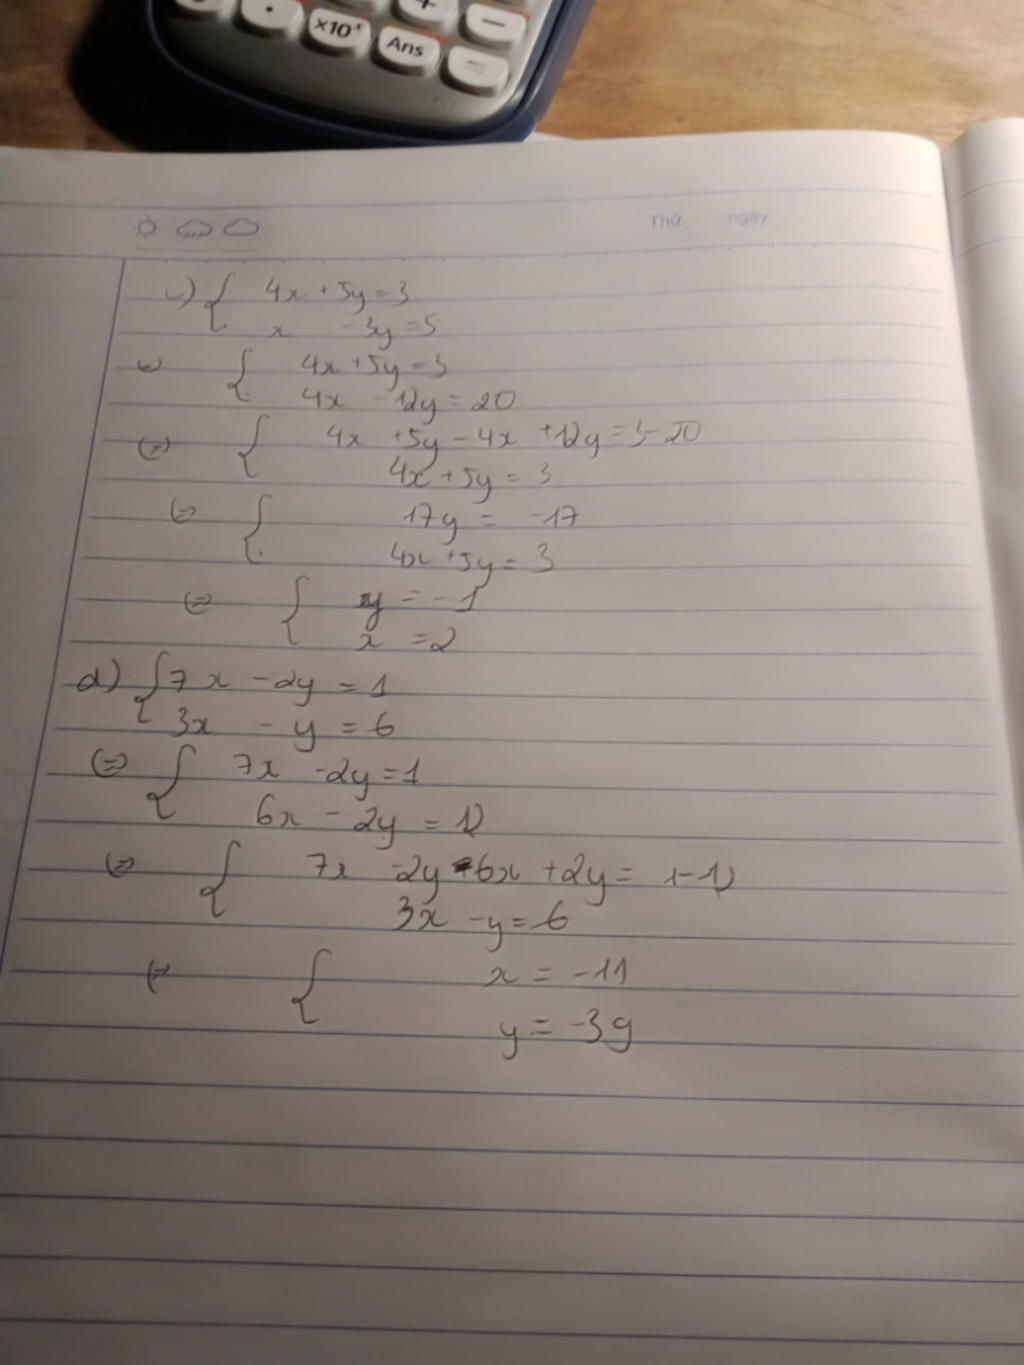 + −
• ×10ˣ Ans =
Thứ ngày
c) { 4x + 5y = 3
x - 3y = 5
⇔ { 4x + 5y = 3
4x - 12y = 20
⇔ { 4x + 5y - 4x + 12y = 3 - 20
4x + 5y = 3
⇔ { 17y = -17
4x + 5y = 3
⇔ { y = -1
x = 2
d) { 7x - 2y = 1
3x - y = 6
⇔ { 7x - 2y = 1
6x - 2y = 12
⇔ { 7x - 2y - 6x + 2y = 1 - 12
3x - y = 6
⇔ { x = -11
y = -39